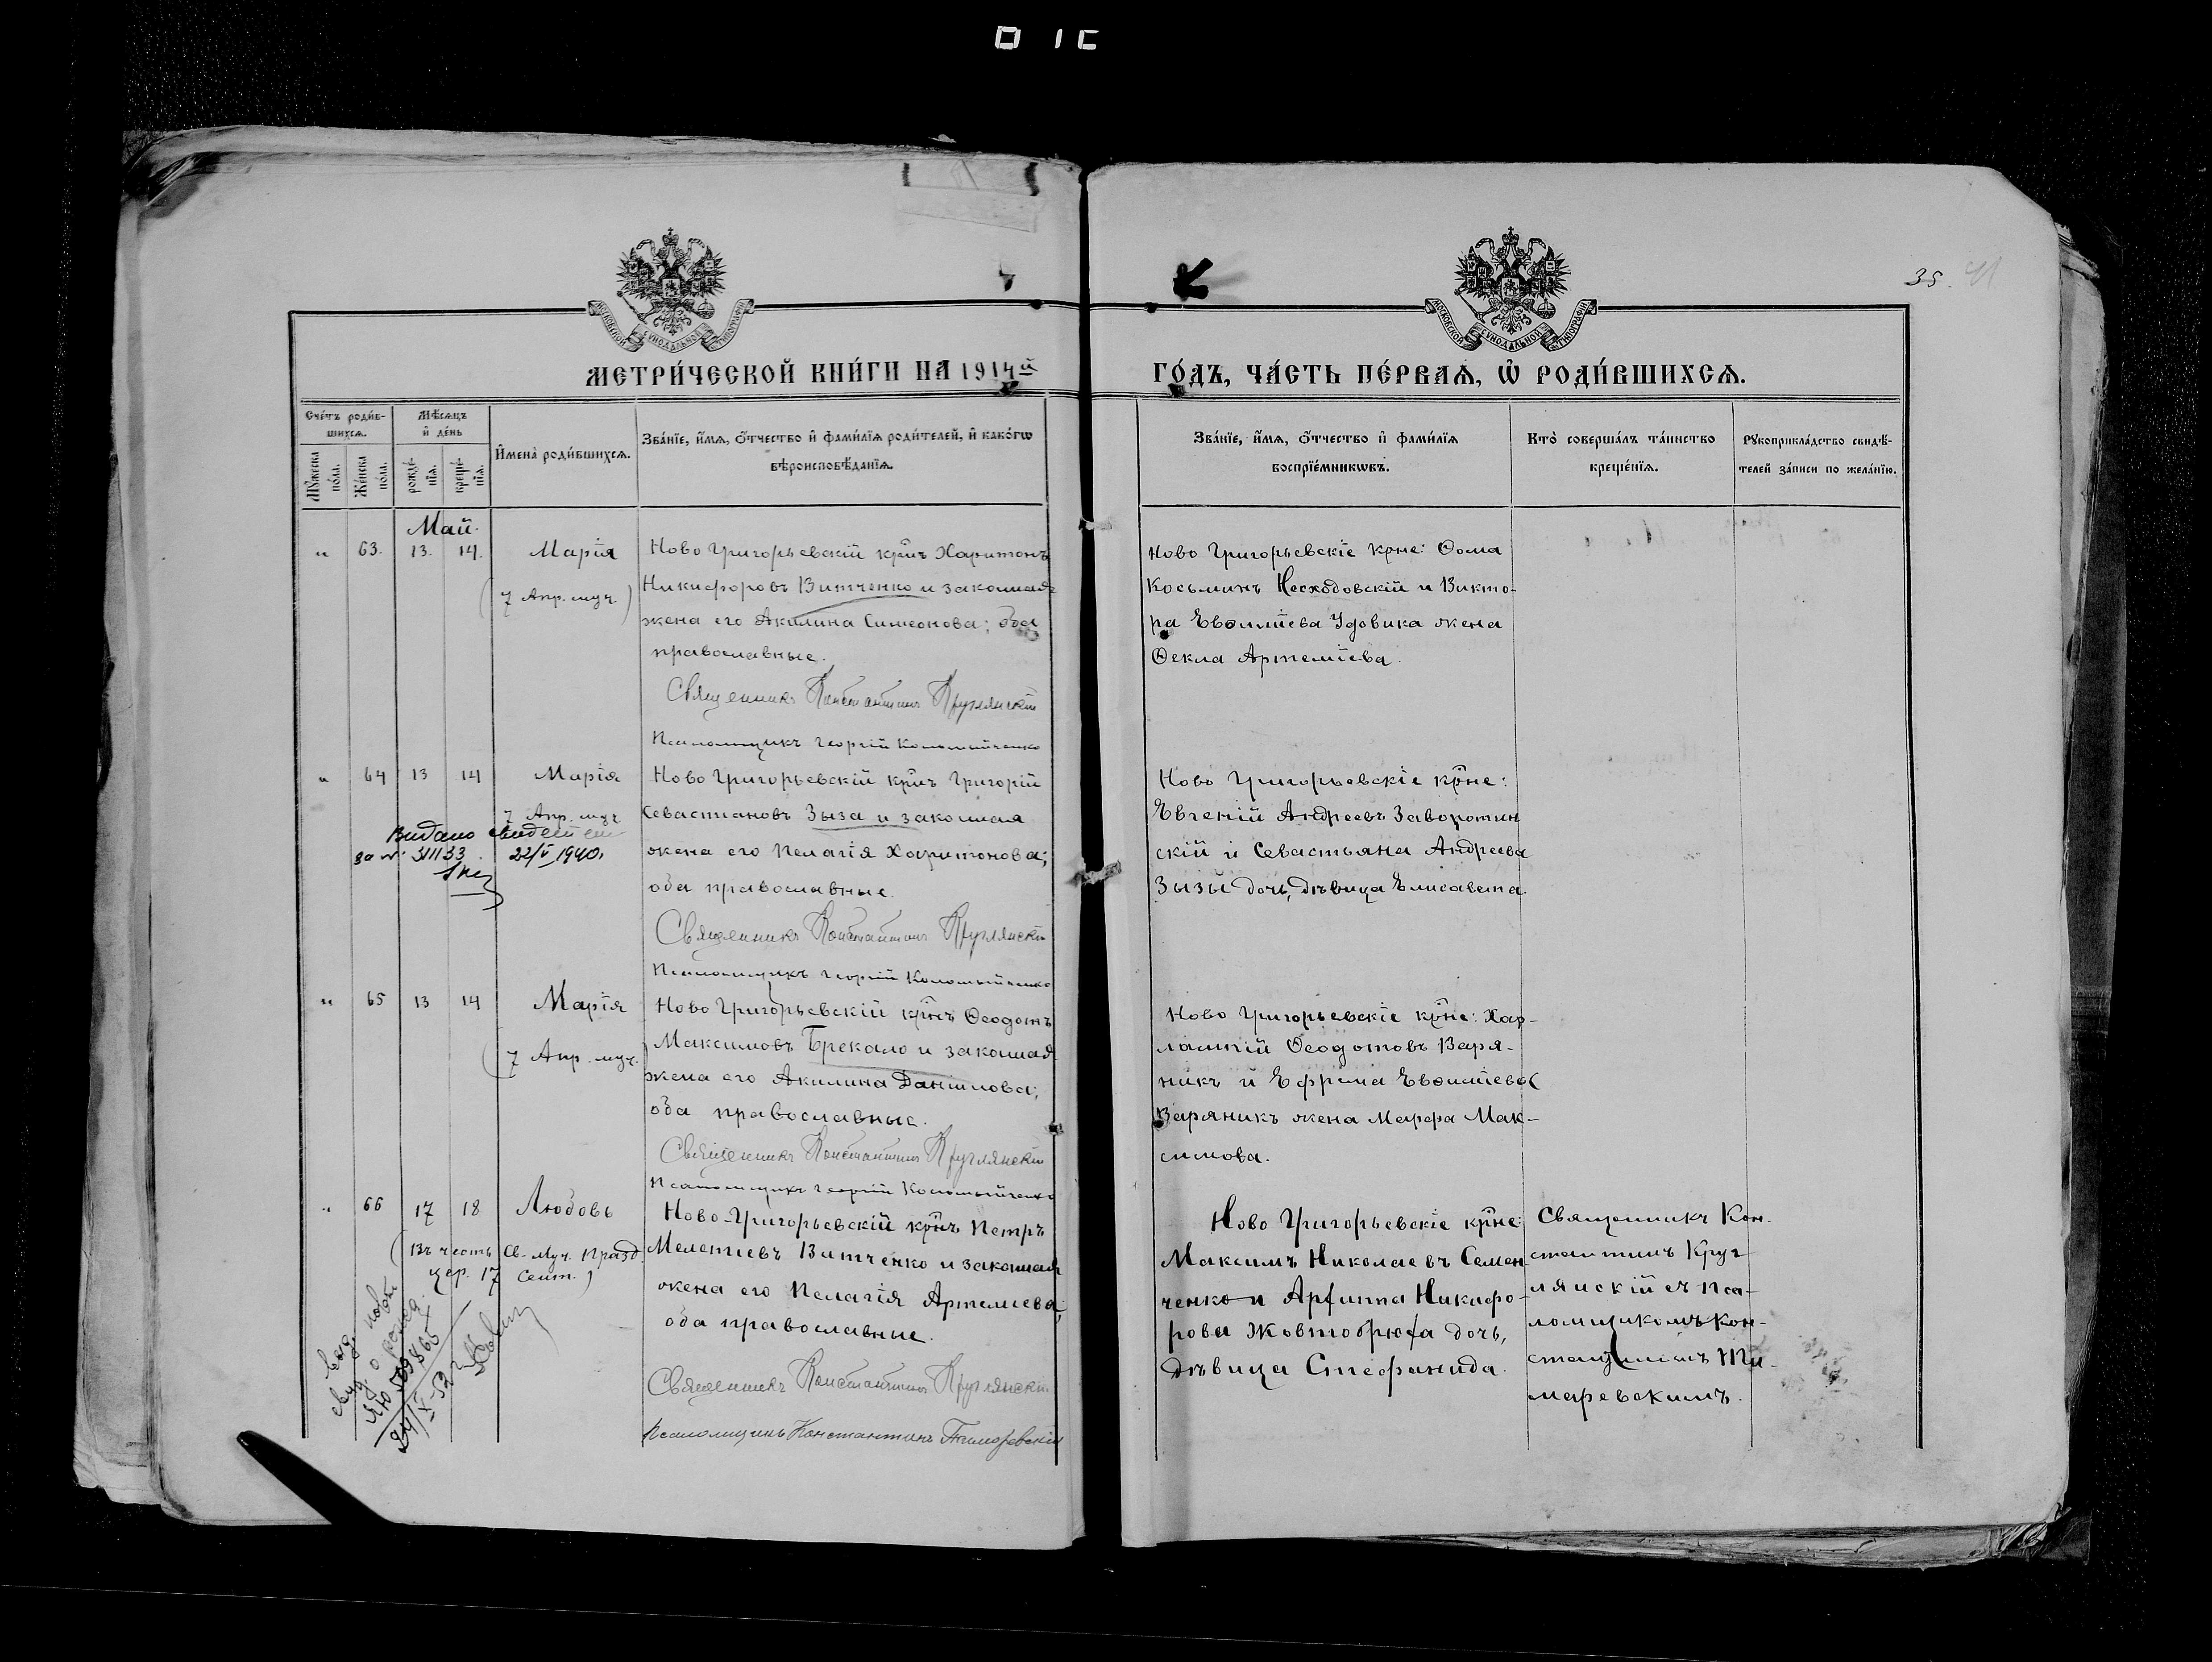 35.
41
МОСКОВСКОЙ СѴНОДАЛЬНОЙ ТИПОГРАФІИ
МОСКОВСКОЙ СѴНОДАЛЬНОЙ ТИПОГРАФІИ
МЕТРИ́ЧЕСКОЙ КНИ́ГИ НА 1914й
ГО́ДЪ, ЧА́СТЬ ПЕ́РВАѦ, Ѡ҆ РОДИ́ВШИХСѦ.
Сче́тъ роди́в-
шихсѧ.
Мѣ́сѧцъ
и҆ де́нь
Мꙋ́жеска по́ла.
Же́нска по́ла.
рожде́нїѧ.
креще́нїѧ.
И҆мена̀ роди́вшихсѧ.
Зва́нїе, и҆́мѧ, ѻ҆́тчество и҆ фами́лїѧ роди́телей, и҆ како́гѡ
вѣроисповѣ́данїѧ.
Зва́нїе, и҆́мѧ, ѻ҆́тчество и҆ фами́лїѧ
воспрїе́мникѡвъ.
Кто̀ соверша́лъ та́инство
креще́нїѧ.
Рꙋкоприкла́дство свидѣ́-
телей за́писи по жела́нїю.
Май.
" 63. 13. 14. Марія
(7 Апр. муч.)
Ново Григорьевскій кр̃нъ Харитонъ
Никифоровъ Витченко и законная
жена его Акилина Симеонова; оба
православные.
Священникъ Константинъ Круглянскій
Псаломщикъ Георгій Коломыйченко
Ново Григорьевскіе кр̃не: Ѳома
Косьминъ Несходовскій и Викто-
ра Евѳиміева Удовика жена
Ѳекла Артеміева.
" 64 13 14 Марія
7 Апр. муч
Видано свидет
за № 31133. 22/V 1940.
Ново Григорьевскій кр̃нъ Григорій
Севастіановъ Зыза и законная
жена его Пелагія Харитонова;
оба православные.
Священникъ Константинъ Круглянскій
Псаломщикъ Георгій Коломыйченко
Ново Григорьевскіе кр̃не:
Евгеній Андреевъ Заворотин
скій и Севастьяна Андреева
Зызы дочь, дѣвица Елисавета.
" 65 13 14 Марія
(7 Апр. муч.)
Ново Григорьевскій кр̃нъ Ѳеодотъ
Максимовъ Брекало и законная
жена его Акилина Даніилова;
оба православные.
Священникъ Константинъ Круглянскій
Псаломщикъ Георгій Коломыйченко
Ново Григорьевскіе кр̃не: Хар-
лампій Ѳеодотовъ Варя-
никъ и Ефрема Евѳиміева
Варяникъ жена Марфа Мак-
симова.
" 66 17 18 Любовь
(Въ честь Св. Муч. Празд.
цер. 17 Сент.)
Ново-Григорьевскій кр̃нъ Петръ
Мелетіевъ Витченко и законная
жена его Пелагія Артеміева;
оба православные.
Священникъ Константинъ Круглянскій
Псаломщикъ Константинъ Тимаревскій
Ново Григорьевскіе кр̃не
Максимъ Николаевъ Семен
ченко и Агриппа Никифо-
рова Жовтобрюха дочь,
дѣвица Стефанида.
Священникъ Кон-
стантинъ Круг
лянскій съ Пса-
ломщикомъ Кон-
стантиномъ Ти-
маревскимъ.
свид. о рожд.
ЯЮ 509865
24/X-52